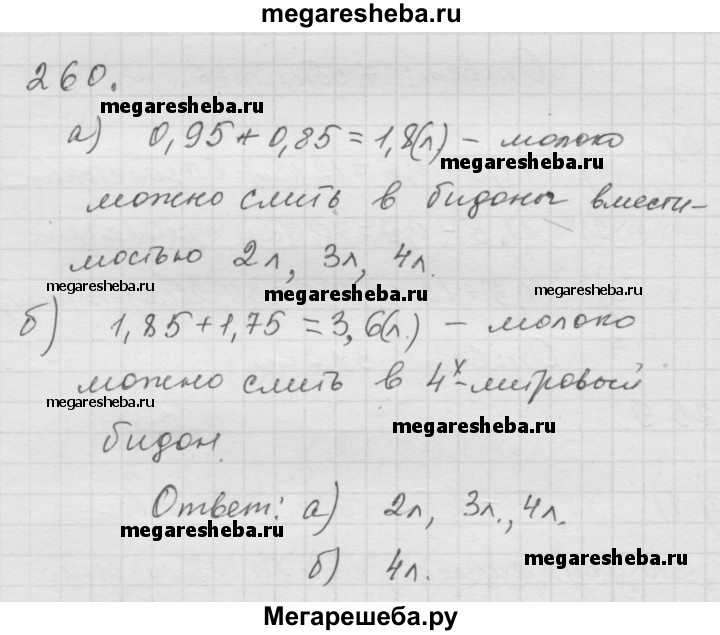 megaresheba.ru
260.
megaresheba.ru
а) 0,95 + 0,85 = 1,8(л) – молоко
megaresheba.ru
можно слить в бидоны вмести-
мостью 2л, 3л, 4л.
megaresheba.ru
megaresheba.ru
megaresheba.ru
б) 1,85 + 1,75 = 3,6(л) – молоко
можно слить в 4х-литровый
megaresheba.ru
megaresheba.ru
бидон.
Ответ: а) 2л, 3л., 4л.
megaresheba.ru
megaresheba.ru
б) 4л.
Мегарешеба.ру